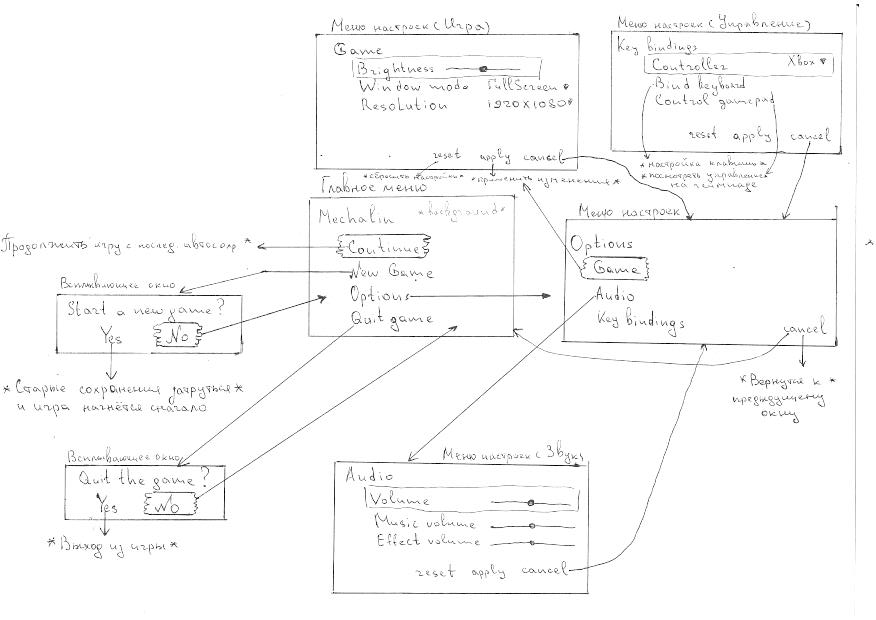 Меню настроек (Игра)
Game
Brightness
Window mode FullScreen
Resolution 1920x1080
reset apply cancel
*сбросить настройки* *применить изменения*
Меню настроек (Управление)
Key bindings
Controller Xbox
Bind keyboard
Control gamepad
reset apply cancel
*настройка клавиш*
*посмотреть управление
на геймпаде
Главное меню
Mechalin *background*
Continue
New Game
Options
Quit game
Продолжить игру с послед. автосохр *
Всплывающее окно
Start a new game?
Yes No
*Старые сохранения затруться*
и игра начнётся сначало
Меню настроек
Options
Game
Audio
Key bindings
cancel
*Вернутся к *
предыдущему
окну
Всплывающее окно
Quit the game?
Yes No
*Выход из игры*
Меню настроек (Звук)
Audio
Volume
Music volume
Effect volume
reset apply cancel